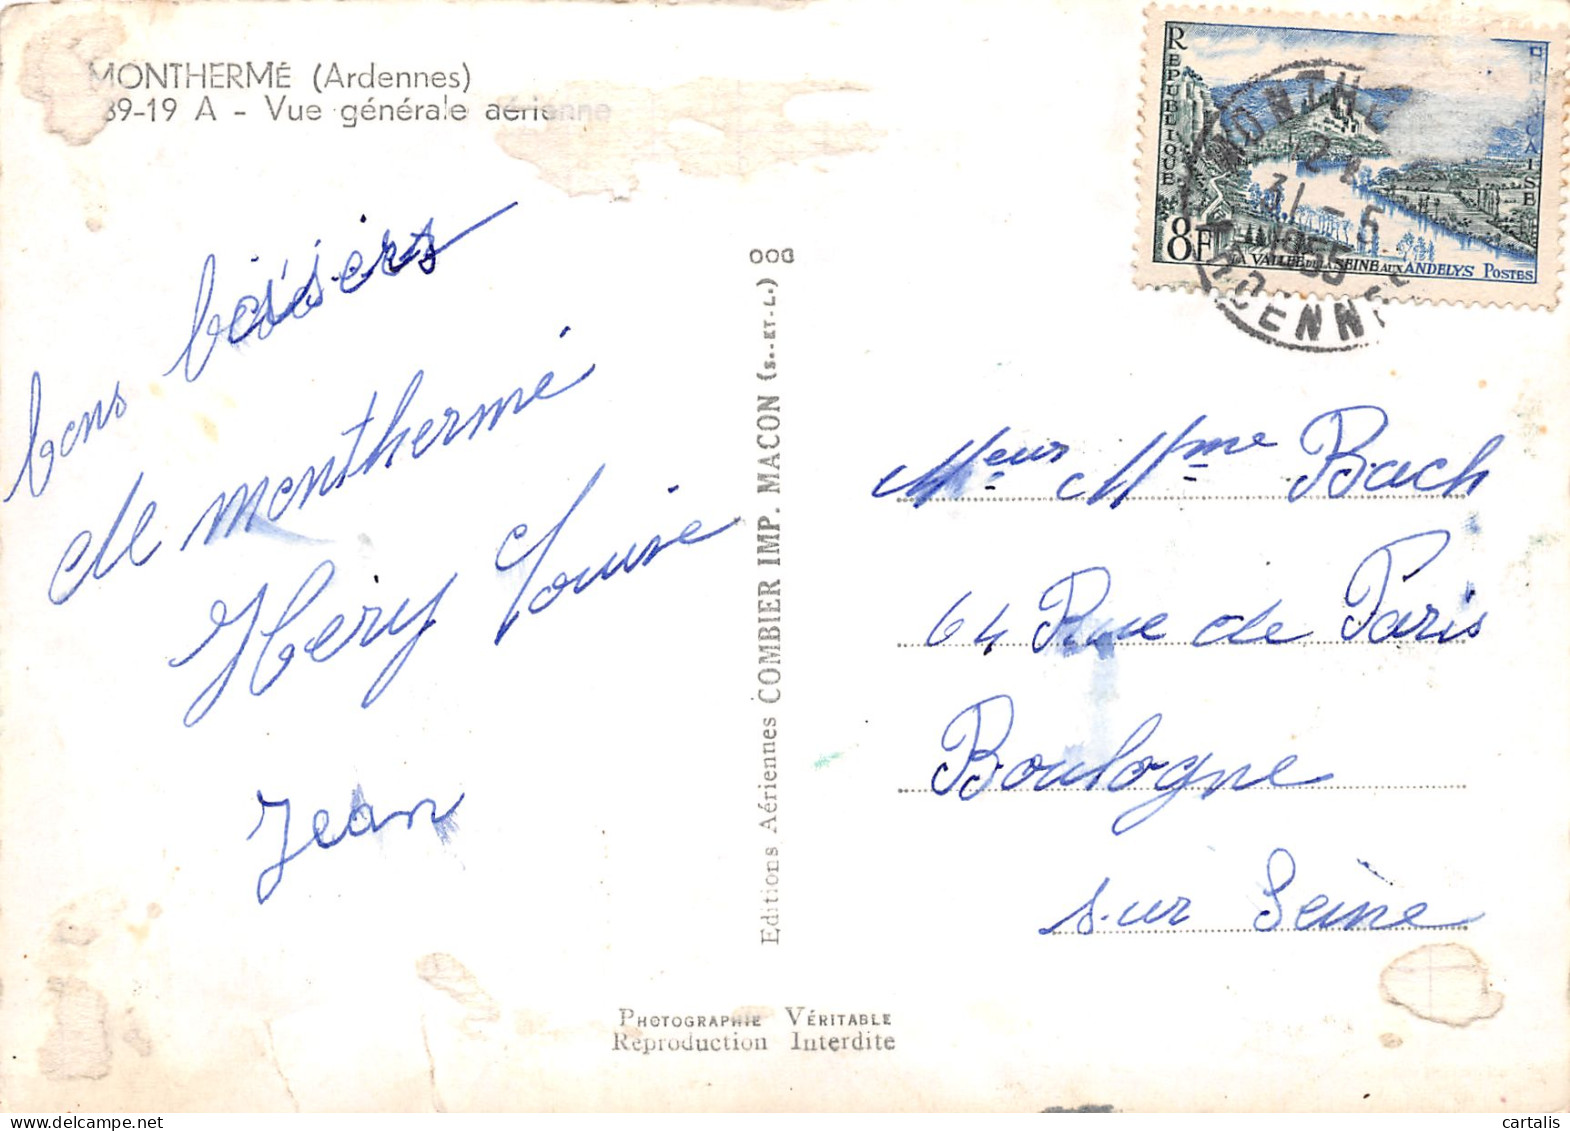 MONTHERMÉ (Ardennes)
39-19 A - Vue générale aérienne
bons baisers
de monthermé
Héry Louise
Jean
Editions Aériennes COMBIER IMP. MACON (S.-ET-L.)
PHOTOGRAPHIE VÉRITABLE
Reproduction Interdite
REPUBLIQUE
FRANCAISE
8F
LA VALLEE DE LA SEINE AUX ANDELYS POSTES
MONTHE
12
31-5
1955
ARDENNES
Meur Mme Bach
64 Rue de Paris
Boulogne
sur Seine
cartalis